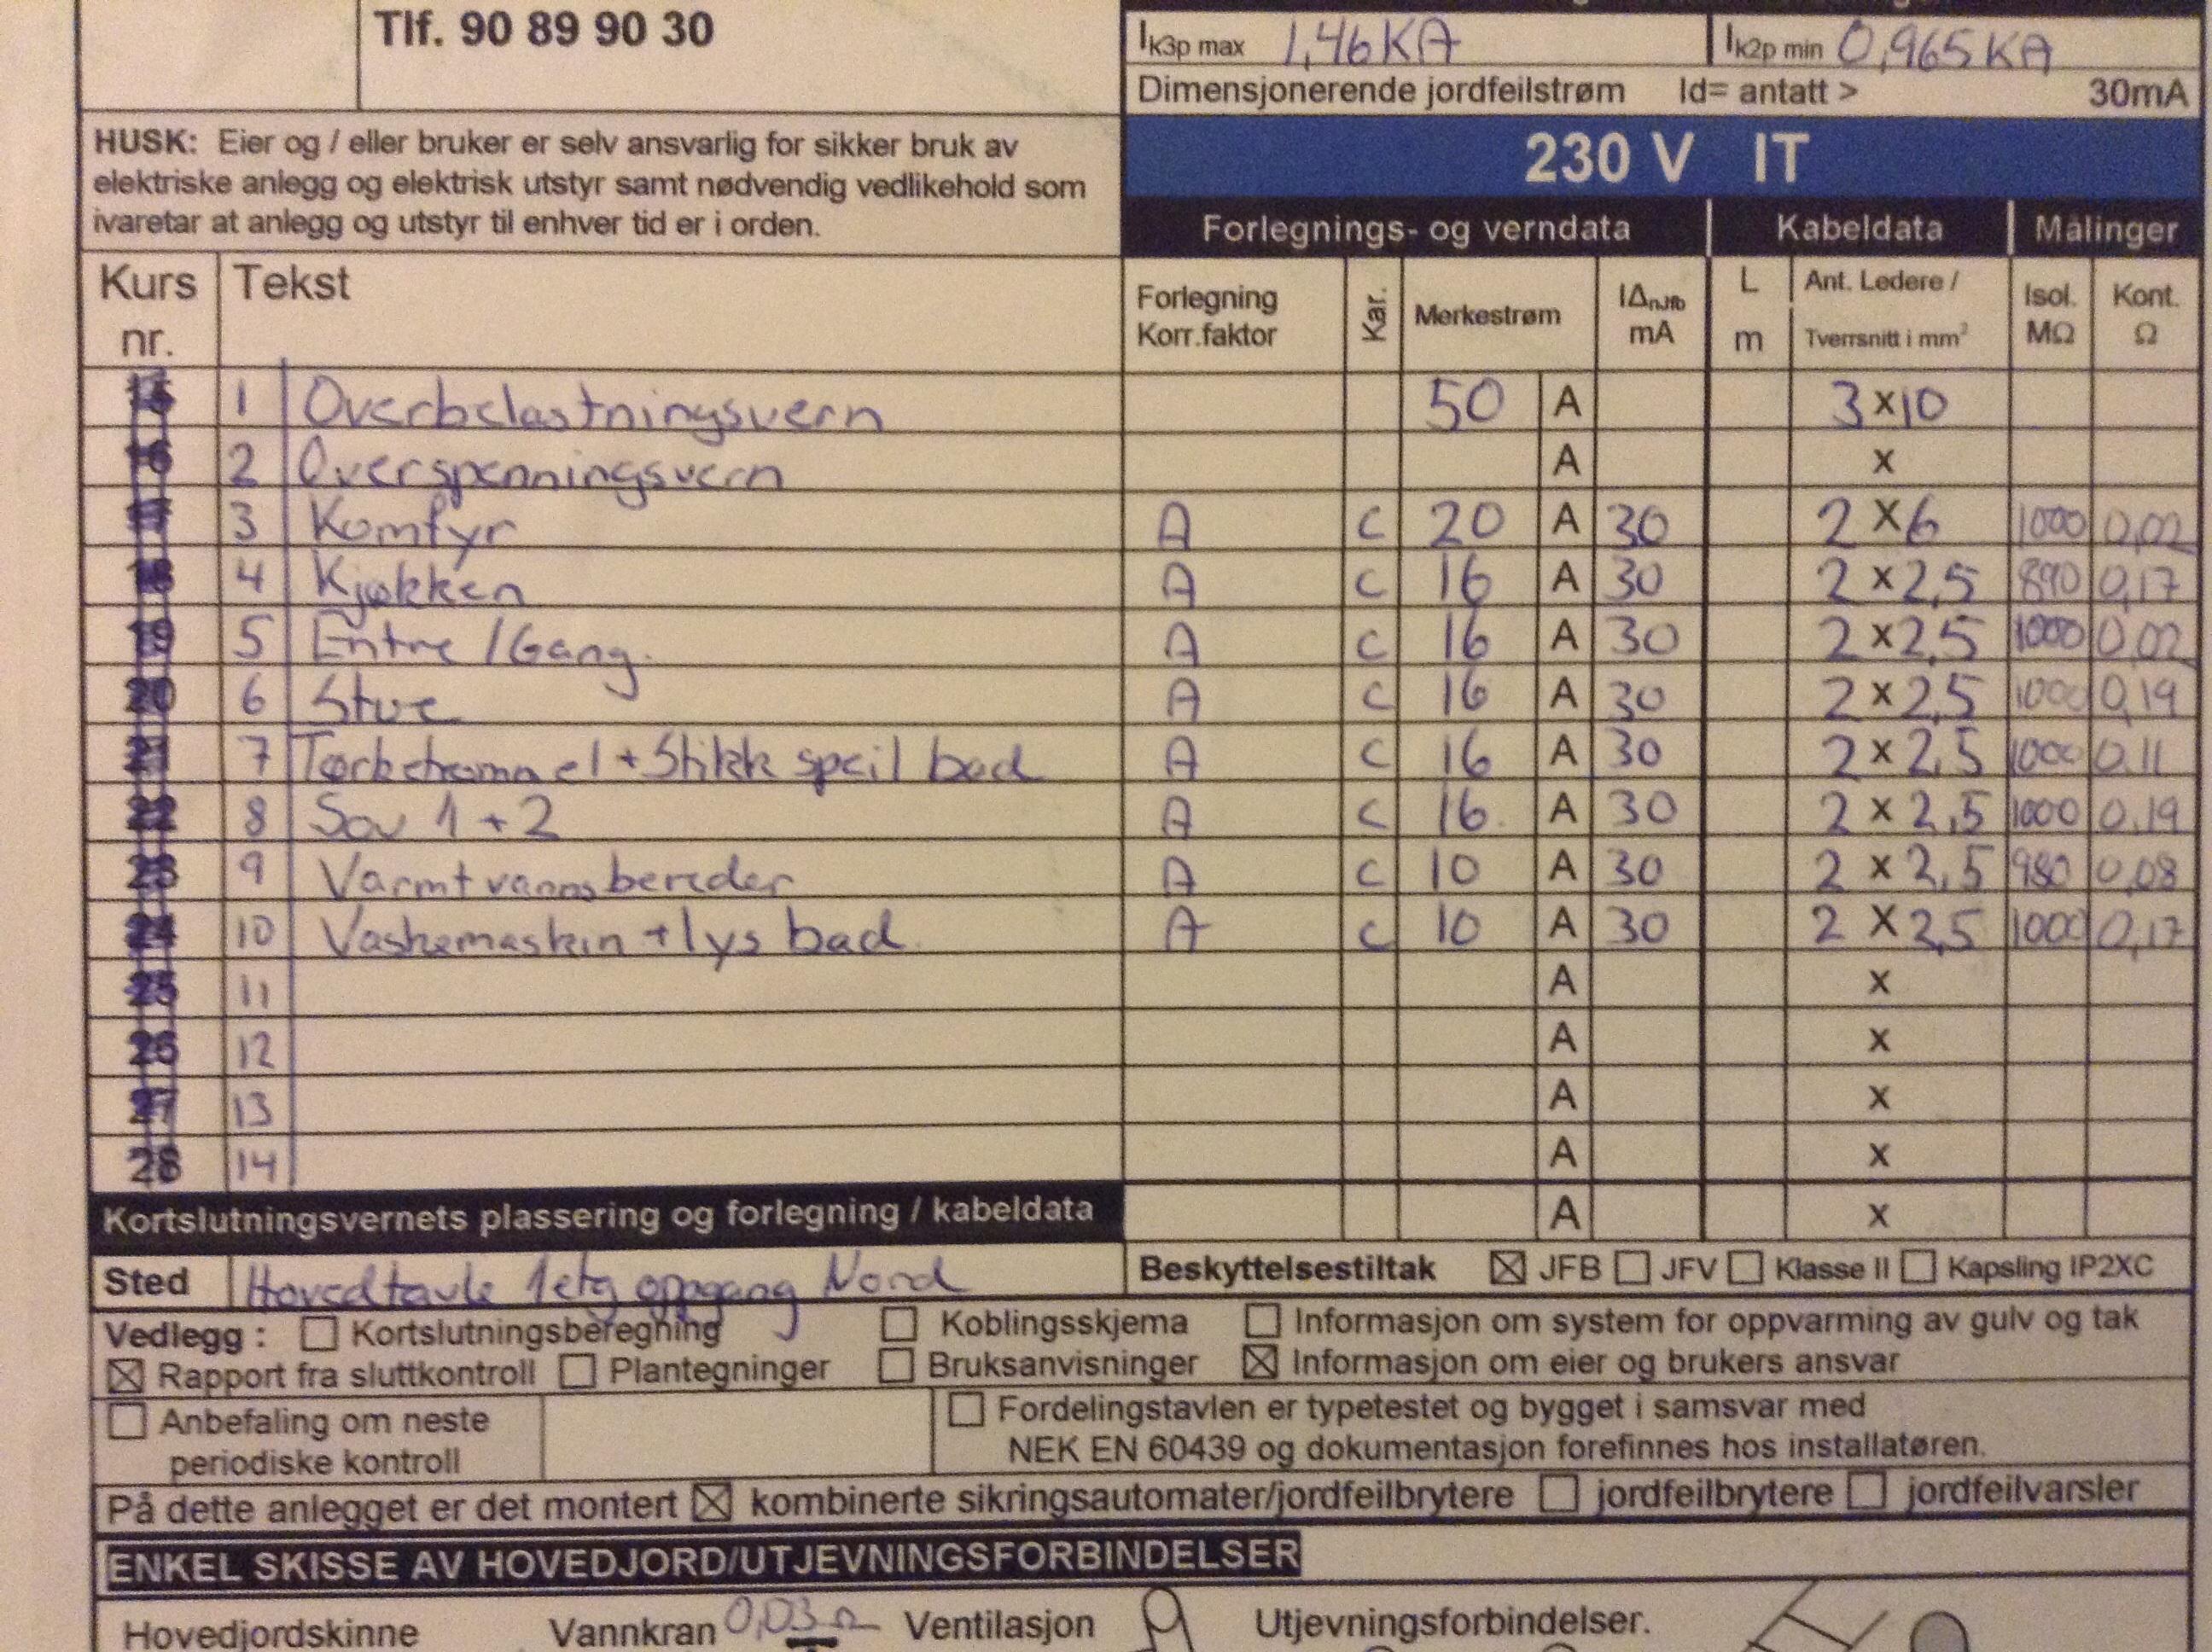 Tlf. 90 89 90 30
Ik3p max 1,46KA Ik2p min 0,965KA
Dimensjonerende jordfeilstrøm Id= antatt > 30mA
HUSK: Eier og / eller bruker er selv ansvarlig for sikker bruk av
elektriske anlegg og elektrisk utstyr samt nødvendig vedlikehold som
ivaretar at anlegg og utstyr til enhver tid er i orden.
230 V IT
Forlegnings- og verndata Kabeldata Målinger
Kurs nr. Tekst Forlegning Korr.faktor Kar. Merkestrøm IΔnJfb mA L m Ant. Ledere / Tverrsnitt i mm² Isol. MΩ Kont. Ω
15 1 Overbelastningsvern 50 A 3 x 10
16 2 Overspenningsvern A x
17 3 Komfyr A C 20 A 30 2 x 6 1000 0,02
18 4 Kjøkken A C 16 A 30 2 x 2,5 890 0,17
19 5 Entre / Gang. A C 16 A 30 2 x 2,5 1000 0,02
20 6 Stue A C 16 A 30 2 x 2,5 1000 0,19
21 7 Tørketrommel + Stikk speil bad A C 16 A 30 2 x 2,5 1000 0.11
22 8 Sov 1 + 2 A C 16. A 30 2 x 2,5 1000 0.19
23 9 Varmtvannsbereder A C 10 A 30 2 x 2,5 980 0,08
24 10 Vaskemaskin + lys bad A C 10 A 30 2 x 2,5 1000 0,17
25 11 A x
26 12 A x
27 13 A x
28 14 A x
Kortslutningsvernets plassering og forlegning / kabeldata A x
Sted Hovedtavle 1etg oppgang Nord Beskyttelsestiltak JFB JFV Klasse II Kapsling IP2XC
Vedlegg : Kortslutningsberegning Koblingsskjema Informasjon om system for oppvarming av gulv og tak
Rapport fra sluttkontroll Plantegninger Bruksanvisninger Informasjon om eier og brukers ansvar
Anbefaling om neste periodiske kontroll
Fordelingstavlen er typetestet og bygget i samsvar med
NEK EN 60439 og dokumentasjon forefinnes hos installatøren.
På dette anlegget er det montert kombinerte sikringsautomater/jordfeilbrytere jordfeilbrytere jordfeilvarsler
ENKEL SKISSE AV HOVEDJORD/UTJEVNINGSFORBINDELSER
Hovedjordskinne Vannkran 0,03 Ω Ventilasjon Utjevningsforbindelser.